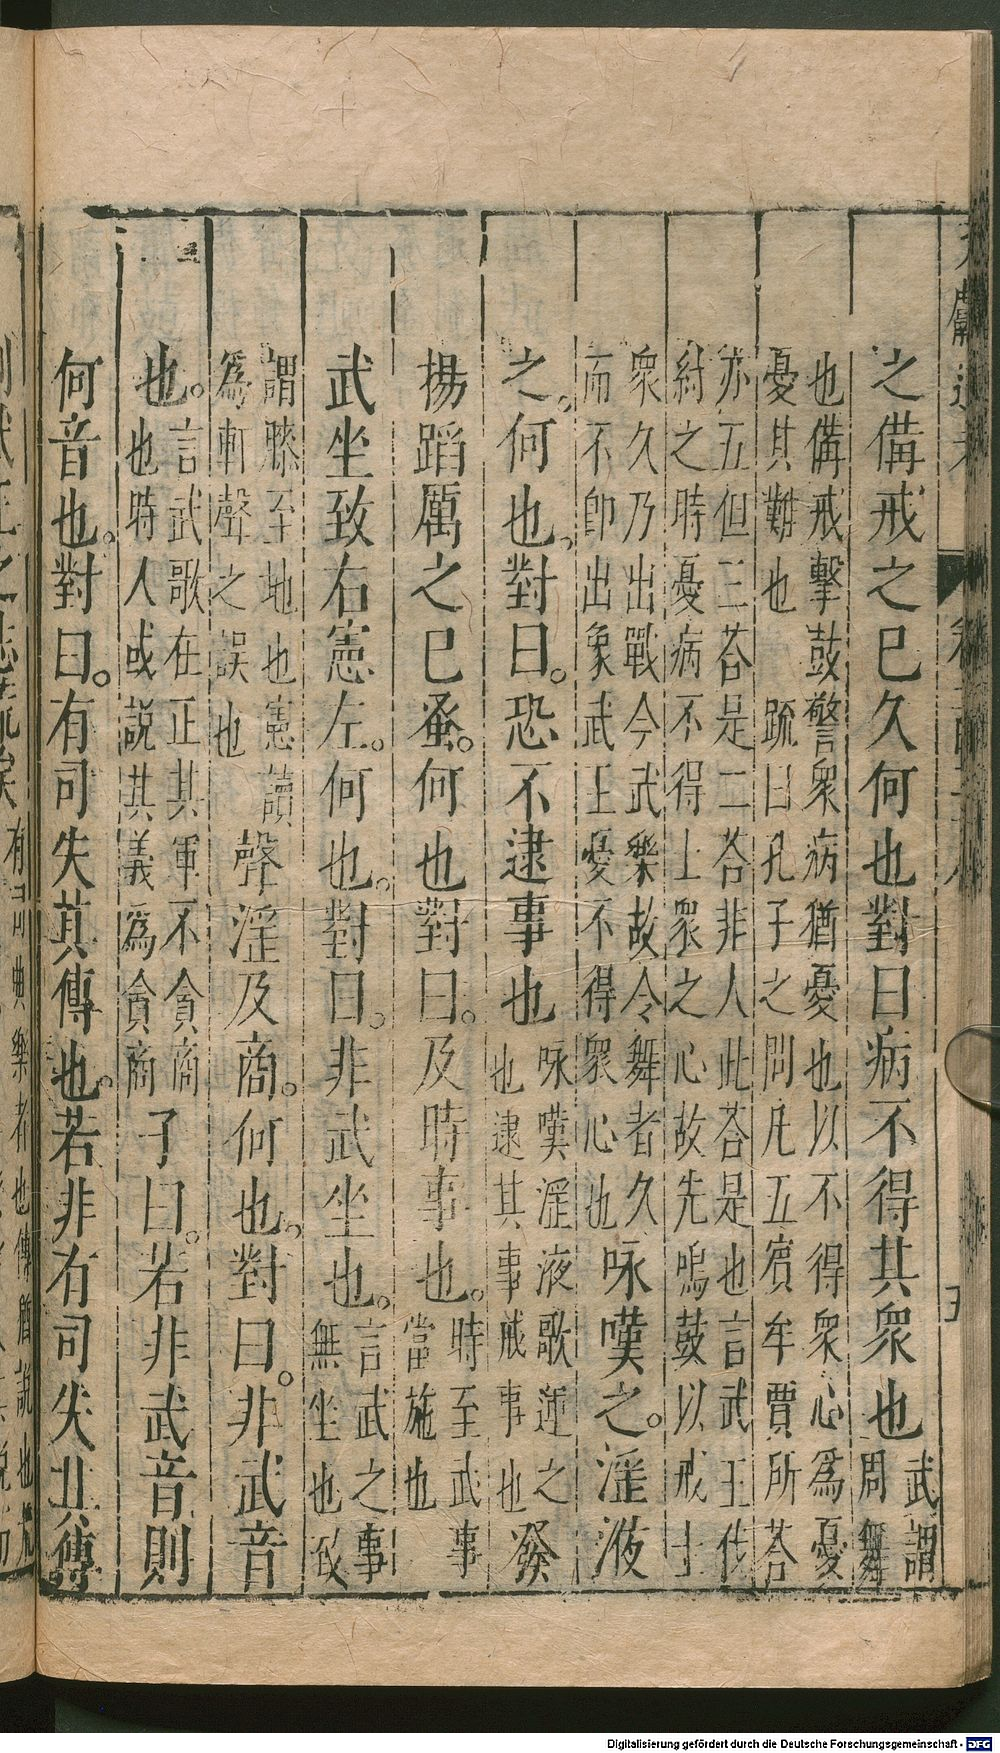 之備戒之巳久何也對曰病不得其衆也武謂周舞
也備戒擊鼓警衆病猶憂也以不得衆心爲憂
憂其難也 疏曰孔子之問凡五賓牟賈所荅
亦五但三荅是二荅非人此荅是也言武王伐
紂之時憂病不得士衆之心故先鳴鼓以戒士
衆久乃出戰今武樂故令舞者久
而不卽出象武王憂不得衆心也
咏嘆之。淫液
之。何也。對曰。恐不逮事也
咏嘆淫液歌遲之
也逮其事戚事也
發
揚蹈厲之巳蚤。何也對曰。及時事也。
時至武事
當施也
武坐致右憲左。何也。對曰。非武坐也。
言武之事
無坐也致
謂膝至地也憲讀
爲軒聲之誤也
聲淫及商。何也。對曰。非武音
也。
言武歌在正其軍不貪商
也時人或説其義爲貪商
子曰。若非武音則
何音也。對曰。有司失其傳也。若非有司失其傳
有司典樂者也傳猶說也
Digitalisierung gefördert durch die Deutsche Forschungsgemeinschaft - DFG